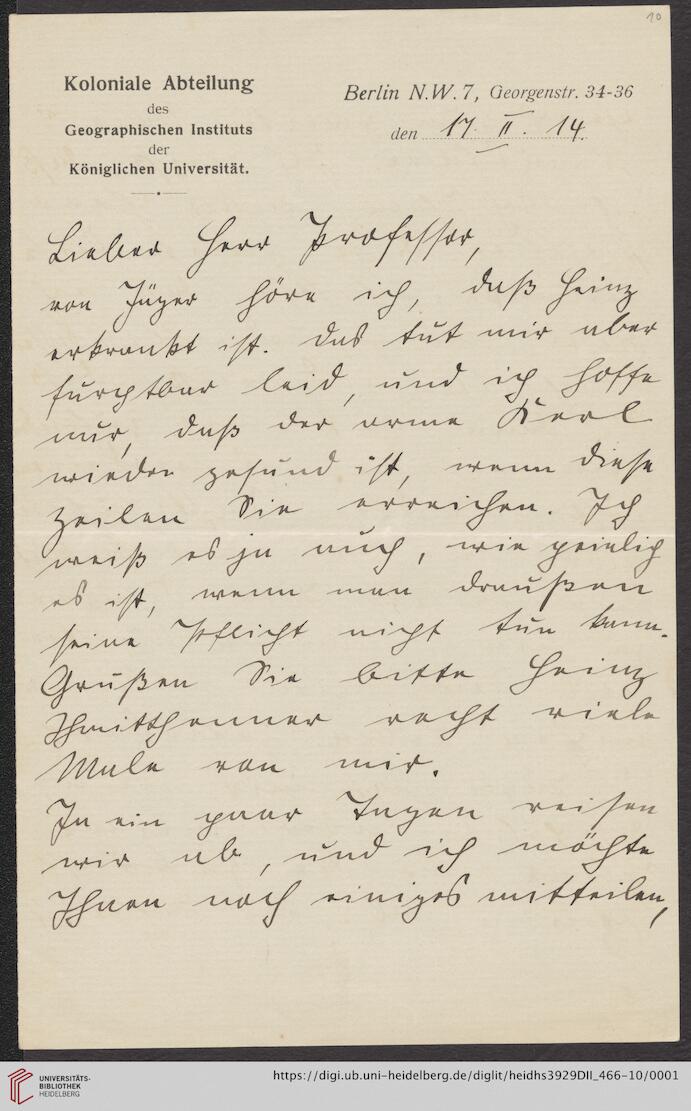 10
Koloniale Abteilung
des
Geographischen Instituts
der
Königlichen Universität.
Berlin N.W. 7, Georgenstr. 34-36
den 17. II. 14.
Lieber Herr Professor,
von Jäger höre ich, daß Heinz
erkrankt ist. Das tut mir aber
furchtbar leid, und ich hoffe
nur, daß der arme Kerl
wieder gesund ist, wenn diese
Zeilen Sie erreichen. Ich
weiß es ja auch, wie peinlich
es ist, wenn man draußen
seine Pflicht nicht tun kann.
Grüßen Sie bitte Heinz
Schmitthenner recht viele
Male von mir.
In ein paar Tagen reisen
wir ab, und ich möchte
Ihnen noch einiges mitteilen,
UNIVERSITÄTS-
BIBLIOTHEK
HEIDELBERG
https://digi.ub.uni-heidelberg.de/diglit/heidhs3929DII_466-10/0001